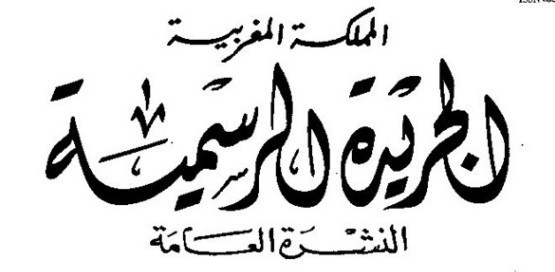 المملكة المغربية
الجريدة الرسمية
النشرة العامة